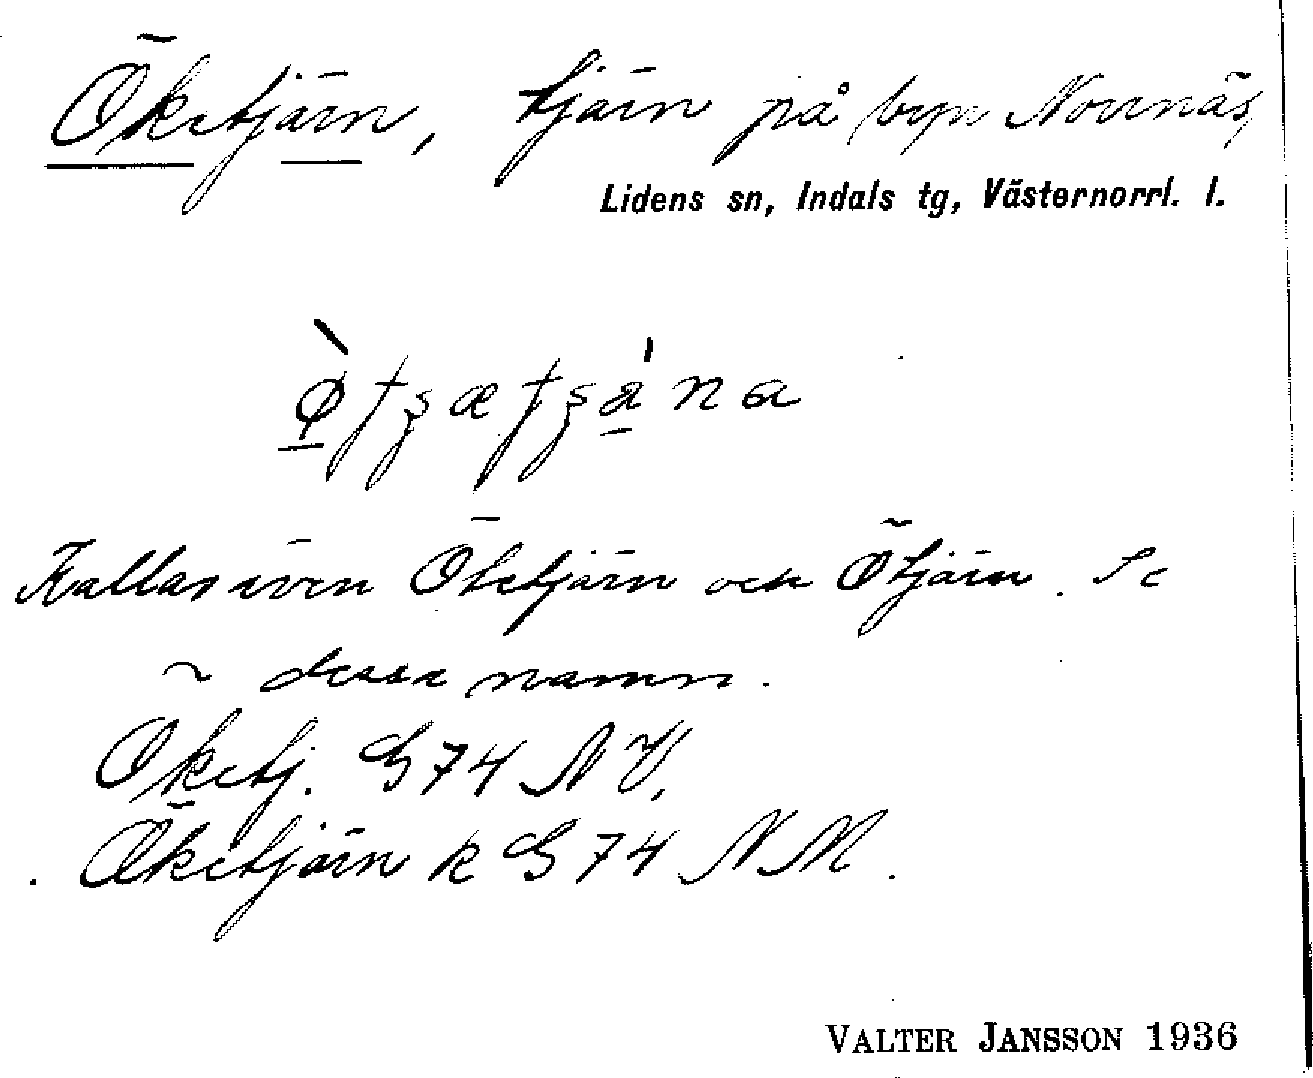 Öketjärn, tjärn på byn Norrnäs,
Lidens sn, Indals tg, Västernorrl. l.
Kallas även Öketjärn och Ötjärn. Se
~ dessa namn.
Öketj. G 74 NV,
Öketjärn k G 74 NM.
VALTER JANSSON 1936